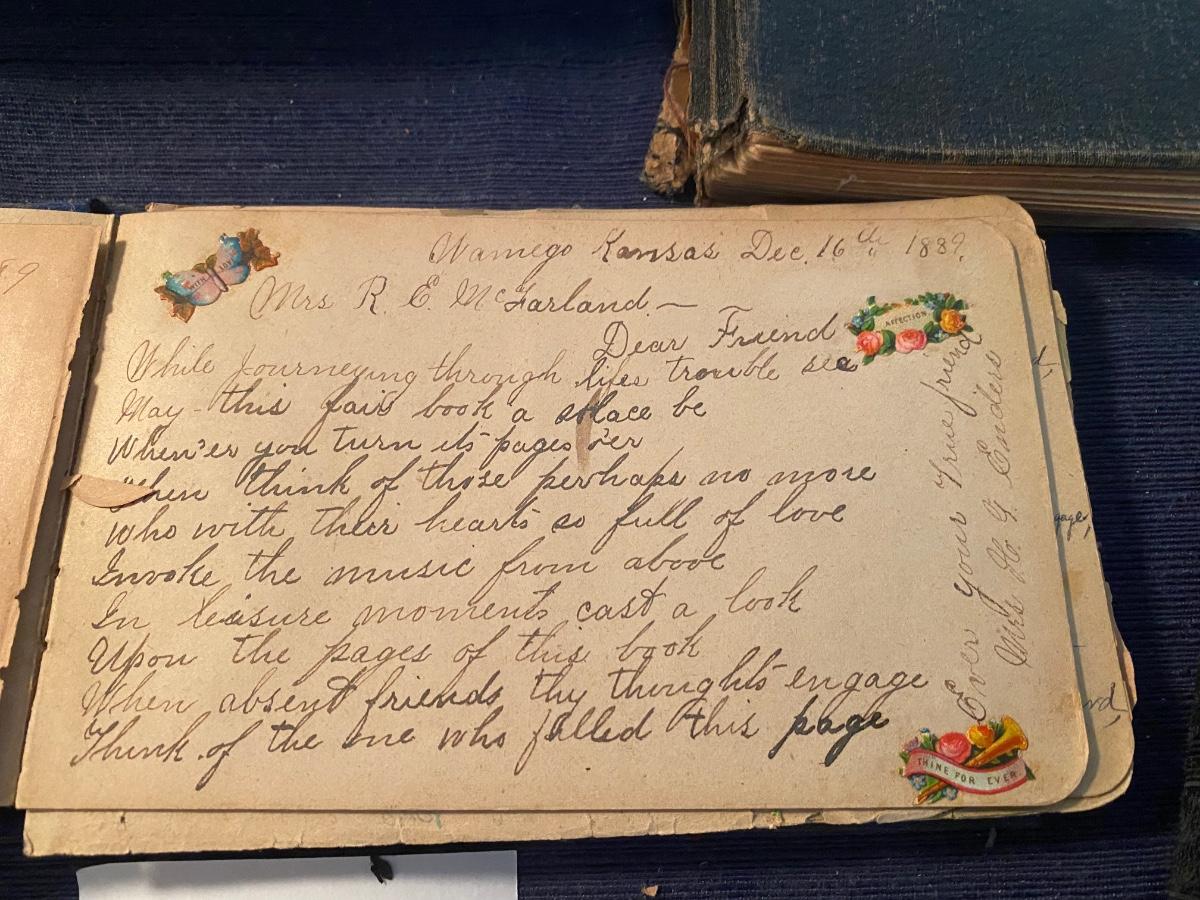 89
WITH LOVE
Wamego Kansas Dec. 16th, 1889.
Mrs R. E. McFarland. —
AFFECTION
Dear Friend
While Journeying through lifes trouble see
May this fair book a solace be
When'er you turn its pages o'er
Then think of those perhaps no more
Who with their hearts so full of love
Invoke the music from above
In leisure moments cast a look
Upon the pages of this book
When absent friends thy thoughts engage
Think of the one who filled this page
Ever your True friend
Mrs H. G. Enders
THINE FOR EVER
d,
gage,
rd,